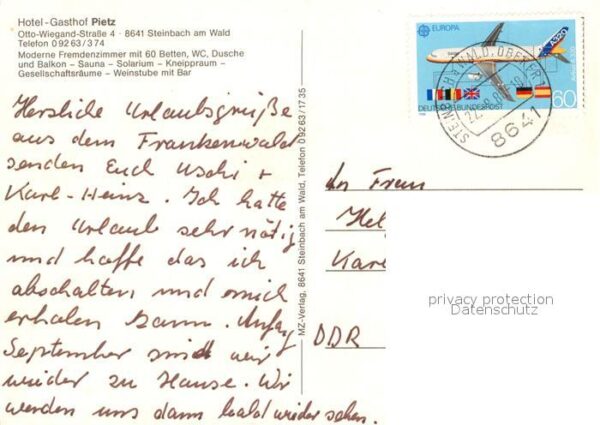 Hotel-Gasthof Pietz
Otto-Wiegand-Straße 4 · 8641 Steinbach am Wald
Telefon 09263/374
Moderne Fremdenzimmer mit 60 Betten, WC, Dusche
und Balkon – Sauna – Solarium – Kneippraum –
Gesellschaftsräume – Weinstube mit Bar
Herzliche Urlaubsgrüße
aus dem Frankenwald
senden Euch Uschi +
Karl-Heinz. Ich hatte
den Urlaub sehr nötig
und hoffe das ich
abschalten, und mich
erholen kann. Anfang
September sind wir
wieder zu Hause. Wir
werden uns dann bald wieder sehen.
MZ-Verlag, 8641 Steinbach am Wald, Telefon 09263/1735
EUROPA
A320
DEUTSCHE BUNDESPOST
60
STEINBACH A. WALD, OBERFR
8641
An Frau
Hel
Kar
DDR
privacy protection
Datenschutz